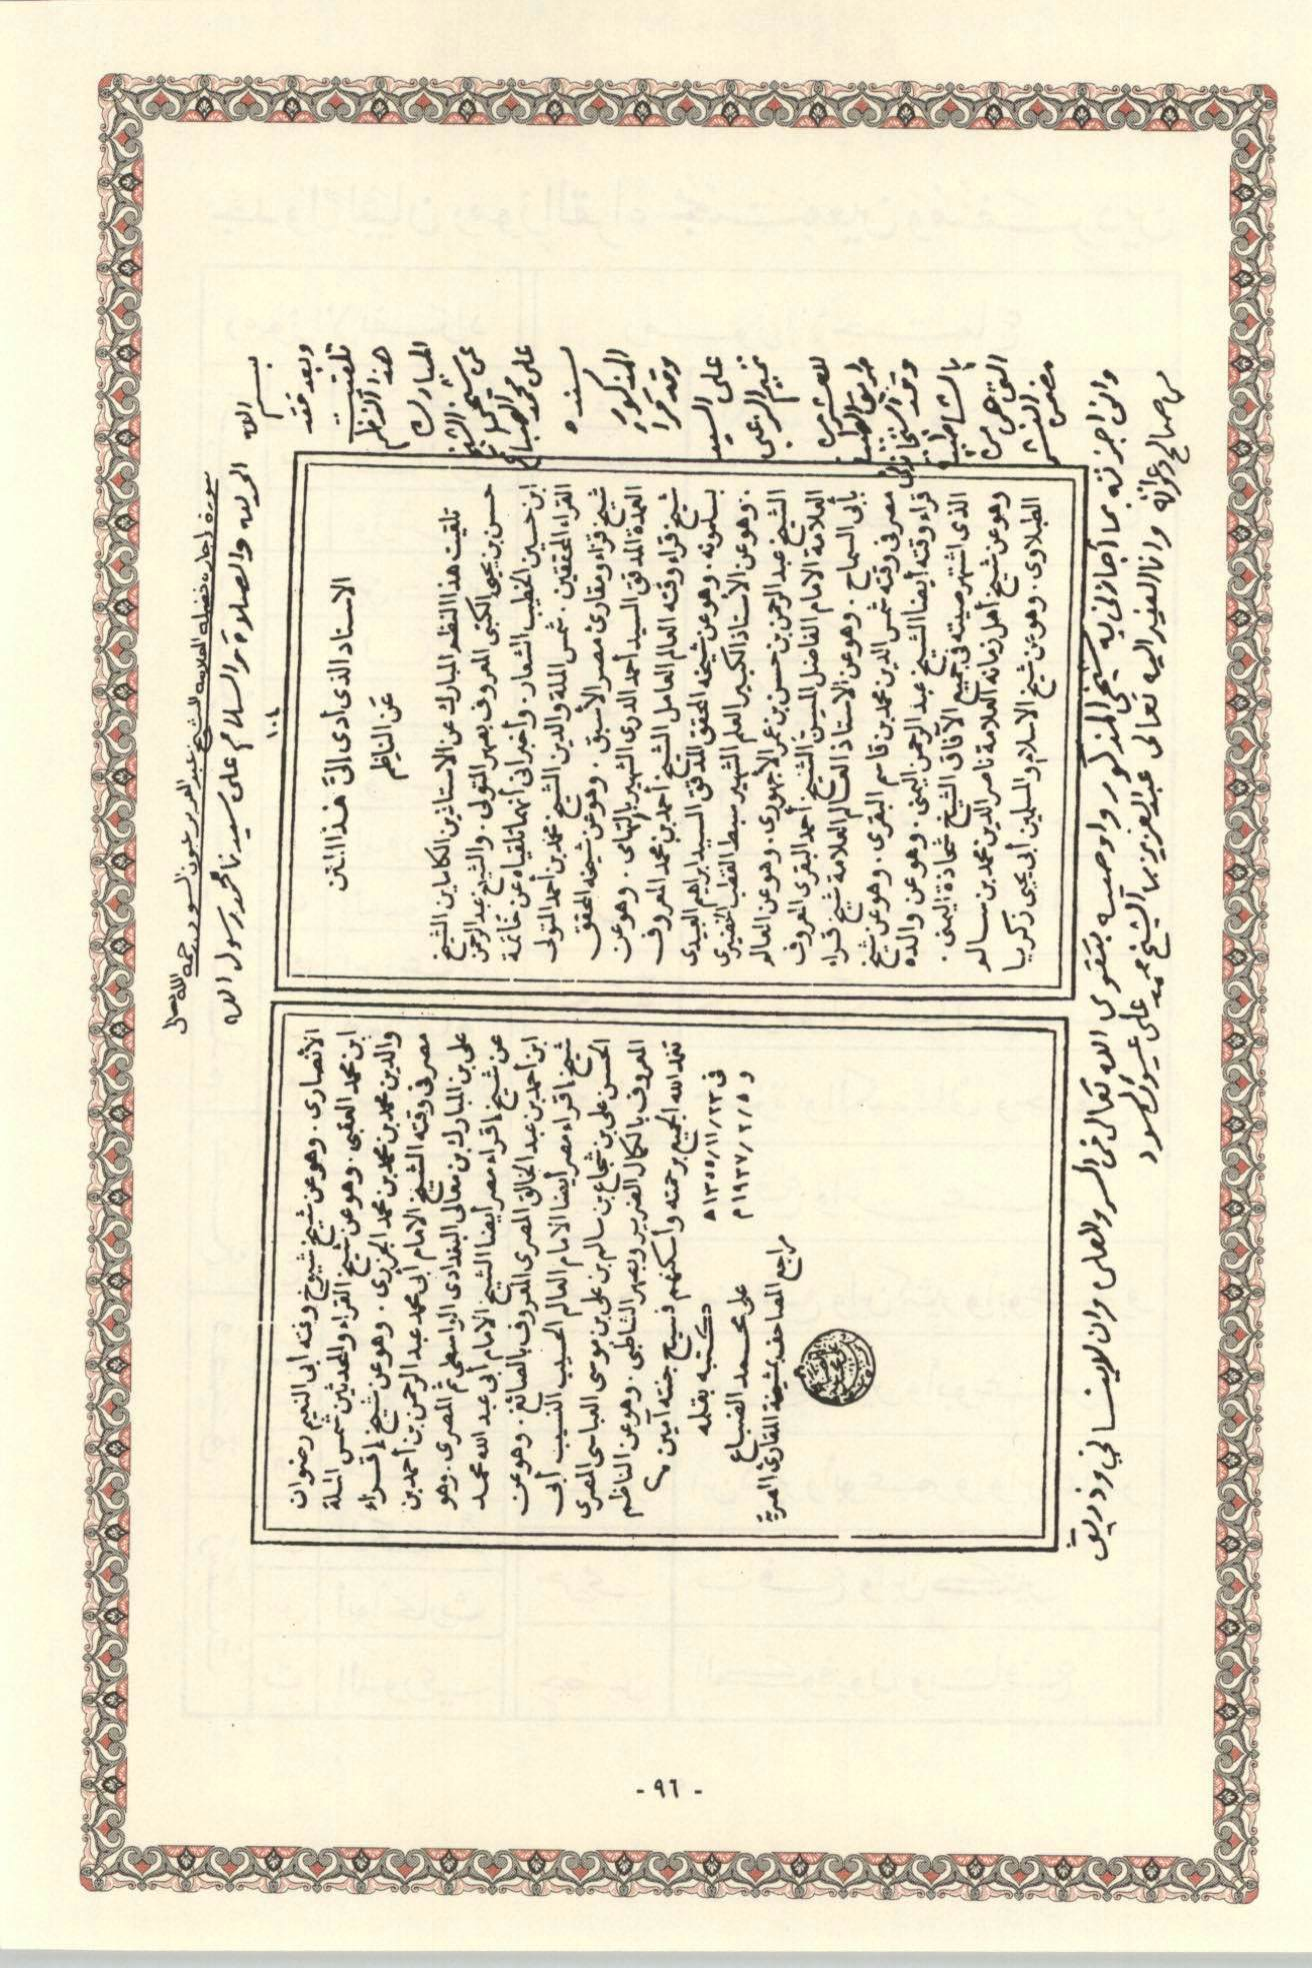 صورة إجازة فضيلة العلامة الشيخ عبد العزيز عيون السود رحمه الله تعالى
بسم الله الحمد لله والصلاة والسلام على سيدنا محمد رسول الله
وبعد فقد
تلقيت
هذا النظم
المبارك
عن شيخي الشيخ
على محمد الضباع
بسنده
المذكور
وقد قرأ
على السيد
١٠٤
الاسناد الذى أدى الىّ هذا المتن
عن الناظم
تلقيت هذا النظم المبارك عن الاستاذين الكاملين الشيخ
حسن بن يحيى الكتبى المعروف بصهر المتولى . والشيخ عبد الرحمن
ابن حسين الخطيب الشعار . وأخبرانى أنهما تلقياه عن خاتمة
القراء المحققين . شمس الملة والدين الشيخ محمد بن أحمد المتولى
شيخ قراء ومقارئ مصر الأسبق . وهو عن شيخه المحقق
العمدة المدقق السيد أحمد الدرى الشهير بالتهامى . وهو عن
شيخ قراء وقته العالم العامل الشيخ أحمد بن محمد المعروف
بسلمونه . وهو عن شيخه المحقق المدقق السيد ابراهيم العبيدى
. وهو عن الأستاذ الكبير العلم الشهير سبط القطب الخضيرى
الشيخ عبد الرحمن بن حسن بن عمر الأجهورى . وهو عن العالم
العلامة الامام الفاضل المسن الشيخ أحمد البقرى المعروف
بأبى السماح . وهو عن الاستاذ العالم العلامة شيخ قراء
مصر فى وقته شمس الدين محمد بن قاسم البقرى . وهو عن شيخ
قراء وقته أيضا الشيخ عبد الرحمن اليمنى . وهو عن والده
الذى اشتهر صيته فى جميع الآفاق الشيخ شحاذة اليمنى .
وهو عن شيخ أهل زمانه العلامة ناصر الدين محمد بن سالم
الطبلاوى . وهو عن شيخ الاسلام والمسلمين أبى يحيى زكريا
الأنصارى . وهو عن شيخ شيوخ وقته أبى النعيم رضوان
ابن محمد العقبى . وهو عن شيخ القراء والمحدثين شمس الملة
والدين محمد بن محمد بن محمد الجزرى . وهو عن شيخ إقراء
مصر فى وقته الشيخ الامام أبى محمد عبد الرحمن بن أحمد بن
على بن المبارك بن معالى البغدادى الواسطى ثم المصرى . وهو
عن شيخ اقراء مصر أيضا الشيخ الامام أبى عبد الله محمد
ابن أحمد بن عبد الخالق المصرى المعروف بالصائغ . وهو عن
شيخ اقراء مصر أيضا الامام العالم الحسيب النسيب أبى
الحسن على بن شجاع بن سالم بن على بن موسى العباسى المصرى
المعروف بالكمال الضرير وبصهر الشاطبى . وهو عن الناظم
تغمد الله الجميع برحمته وأسكنهم فسيح جنته آمين ؟
فى ٢٣/١١/١٣٥٥ ه
و ٥/٢/١٩٣٧ م
كتبه بقلمه
على محمد الضباع
مراجع المصاحف بمشيخة المقارئ المصرية
وانى اجزته بما أجازنى به شيخي المذكور واوصيه بتقوى الله تعالى فى السر والعلن وان لا ينسانى وذريتى
من صالح دعواته وانا الفقير اليه تعالى عبد العزيز بن الشيخ محمد على عيون السود
- ٩٦ -